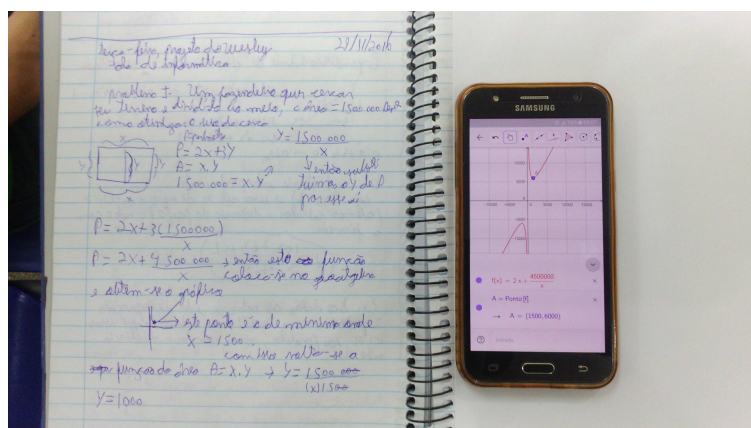 terça-feira, projeto do Wesley 29/11/2016
sala de informática
problema 1. Um fazendeiro quer cercar
seu terreno e dividi-lo ao meio, c/ área = 1500.000
como otimizar o uso da cerca
x
y
x
P = 2x+3y
A = x.y
1500.000 = x.y
y = 1500 000
x
então substi
tuimos o y de P
por esse aí
P = 2x+3(1500000)
x
P = 2x+4 500 000
x
então esta função
coloca-se no geogebra
e obtem-se o gráfico
este ponto é o de mínimo onde
x = 1500.
com isso volta-se a
função da área A = x.y → y = 1500 000
(x)1500
y = 1000
SAMSUNG
f(x) = 2x + 4500000
x
A = Ponto[f]
→ A = (1500, 6000)